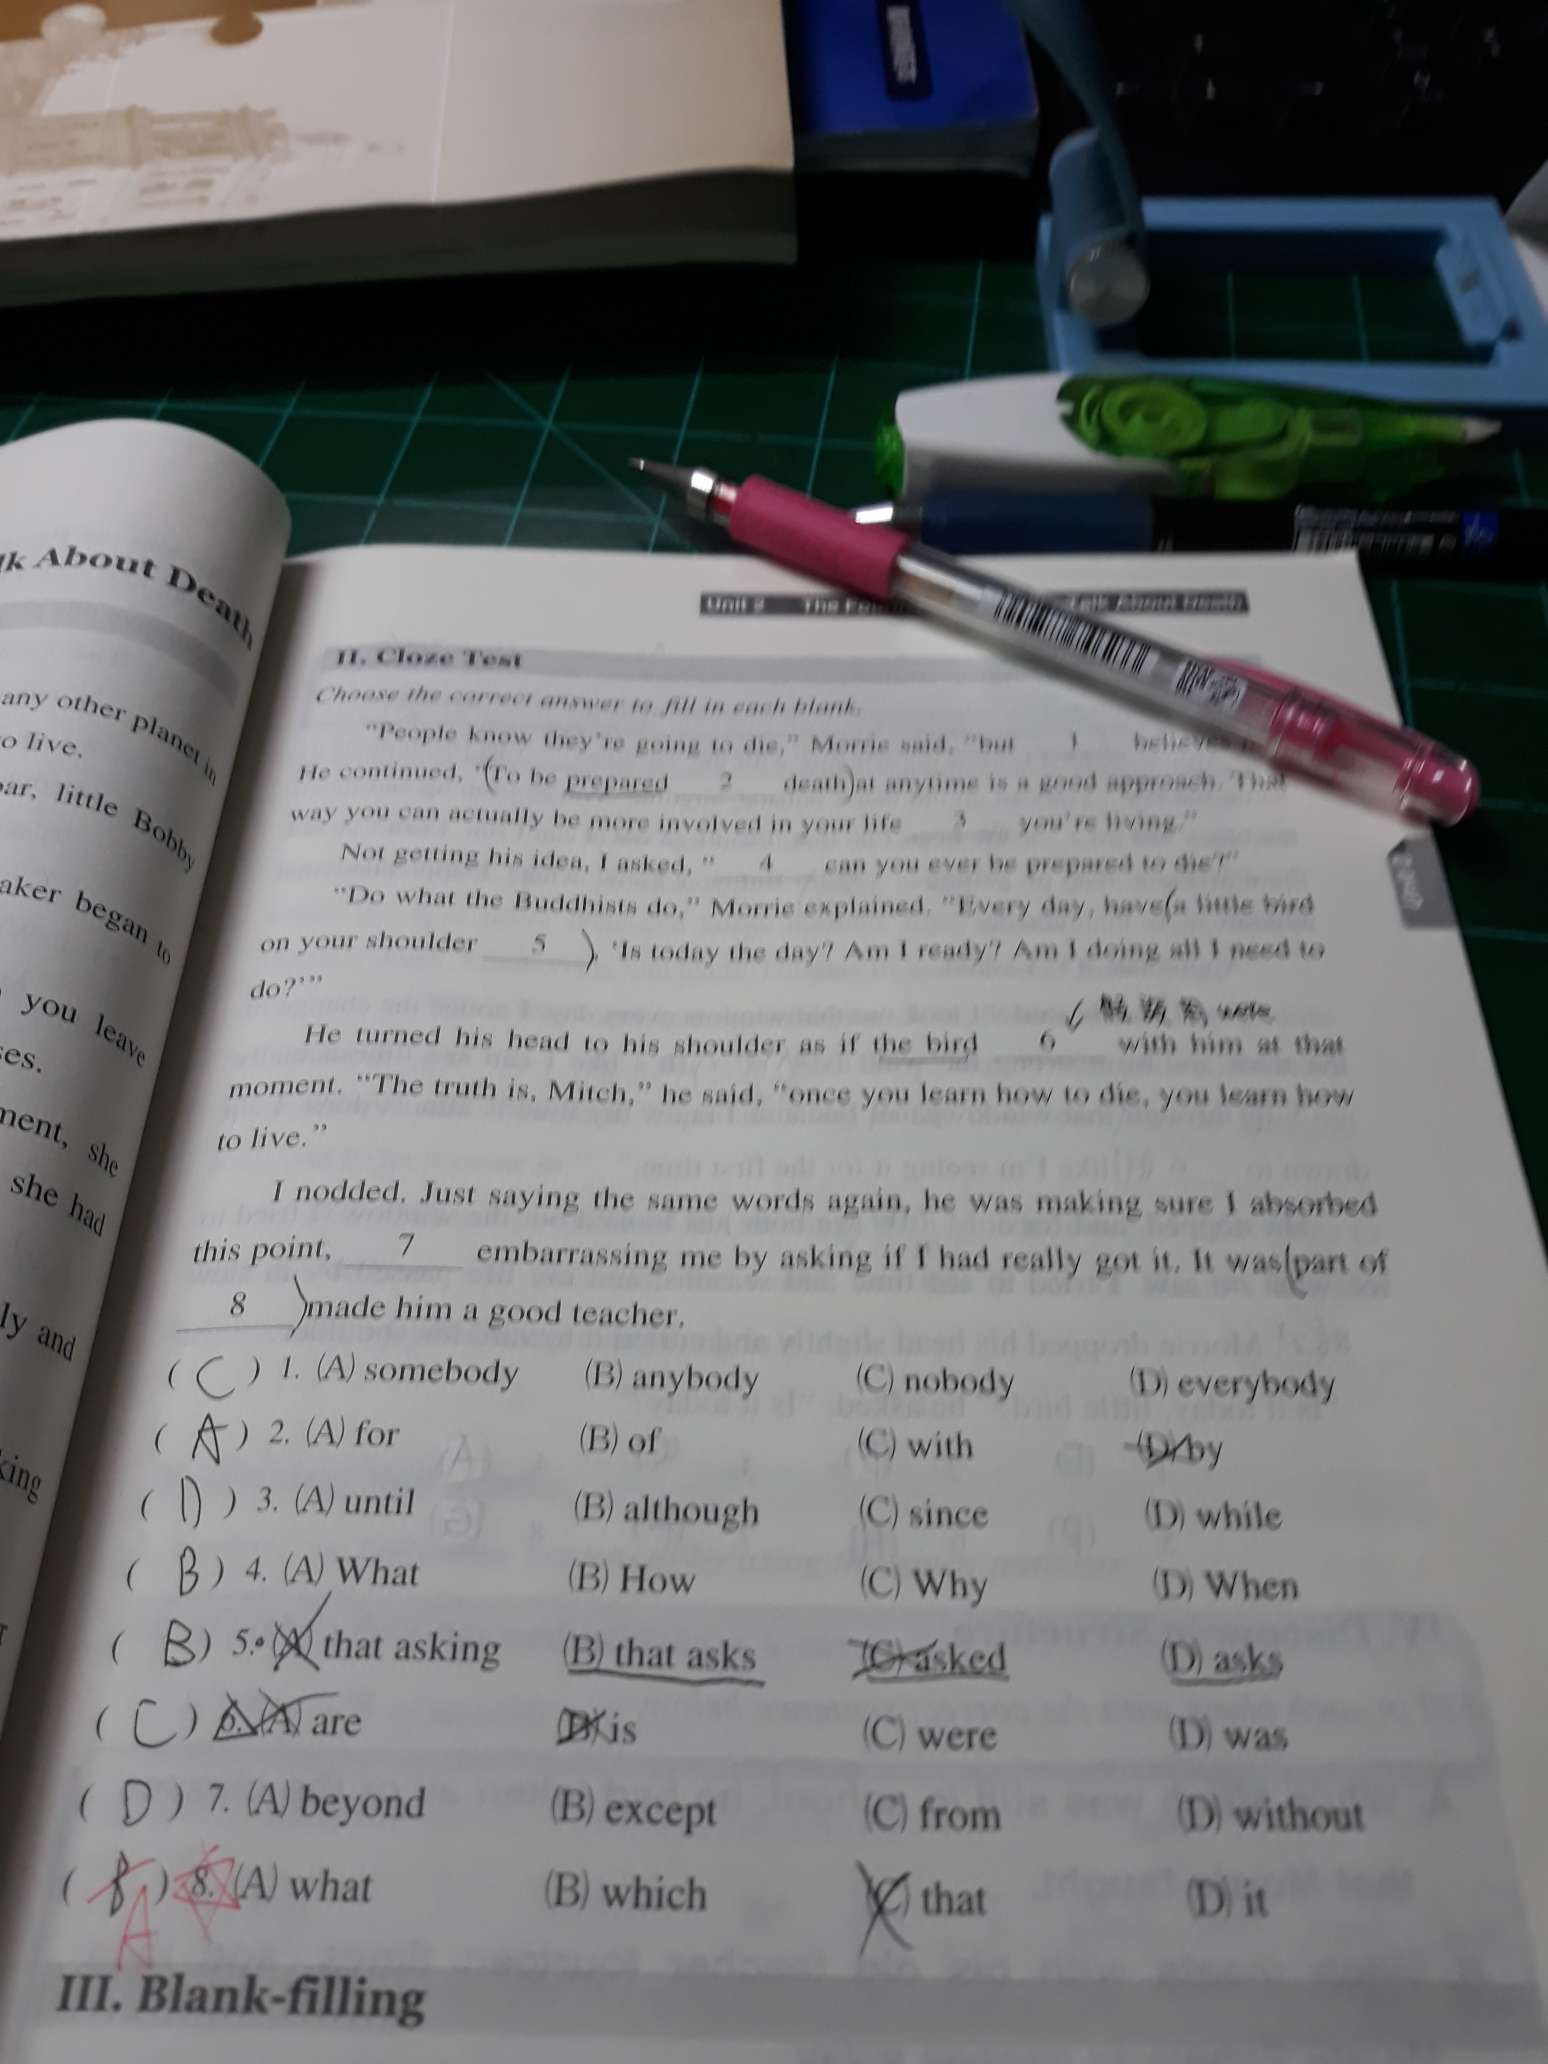 lk About Death
any other planet in
o live.
ar, little Bobby
aker began to
you leave
ses.
ment, she
she had
ly and
king
Unit 2 The Talk About Death
II. Cloze Test
Choose the correct answer to fill in each blank.
"People know they're going to die," Morrie said, "but 1 believes
He continued, "(To be prepared 2 death) at anytime is a good approach. That
way you can actually be more involved in your life 3 you're living."
Not getting his idea, I asked, " 4 can you ever be prepared to die?"
"Do what the Buddhists do," Morrie explained. "Every day, have (a little bird
on your shoulder 5 ), 'Is today the day? Am I ready? Am I doing all I need to
do?'"
were
He turned his head to his shoulder as if the bird 6 with him at that
moment. "The truth is, Mitch," he said, "once you learn how to die, you learn how
to live."
I nodded. Just saying the same words again, he was making sure I absorbed
this point, 7 embarrassing me by asking if I had really got it. It was (part of
8 ) made him a good teacher.
( C ) 1. (A) somebody (B) anybody (C) nobody (D) everybody
( A ) 2. (A) for (B) of (C) with (D) by
( D ) 3. (A) until (B) although (C) since (D) while
( B ) 4. (A) What (B) How (C) Why (D) When
( B ) 5. (A) that asking (B) that asks (C) asked (D) asks
( C ) 6. (A) are (B) is (C) were (D) was
( D ) 7. (A) beyond (B) except (C) from (D) without
( B ) 8. (A) what (B) which (C) that (D) it
A
III. Blank-filling